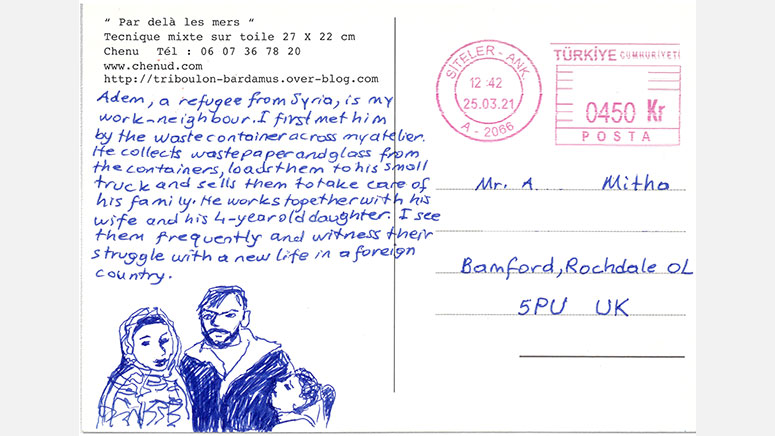 " Par delà les mers "
Tecnique mixte sur toile 27 X 22 cm
Chenu Tél : 06 07 36 78 20
www.chenud.com
http://triboulon-bardamus.over-blog.com
Adem, a refugee from Syria, is my
work-neighbour. I first met him
by the waste container across my atelier.
He collects waste paper and glass from
the containers, loads them to his small
truck and sells them to take care of
his family. He works together with his
wife and his 4-year old daughter. I see
them frequently and witness their
struggle with a new life in a foreign
country.
SİTELER - ANK.
12 :42
25.03.21
A - 2066
TÜRKİYE CUMHURİYETİ
0450 Kr
POSTA
Mr. A Mitha
Bamford, Rochdale OL
5PU UK